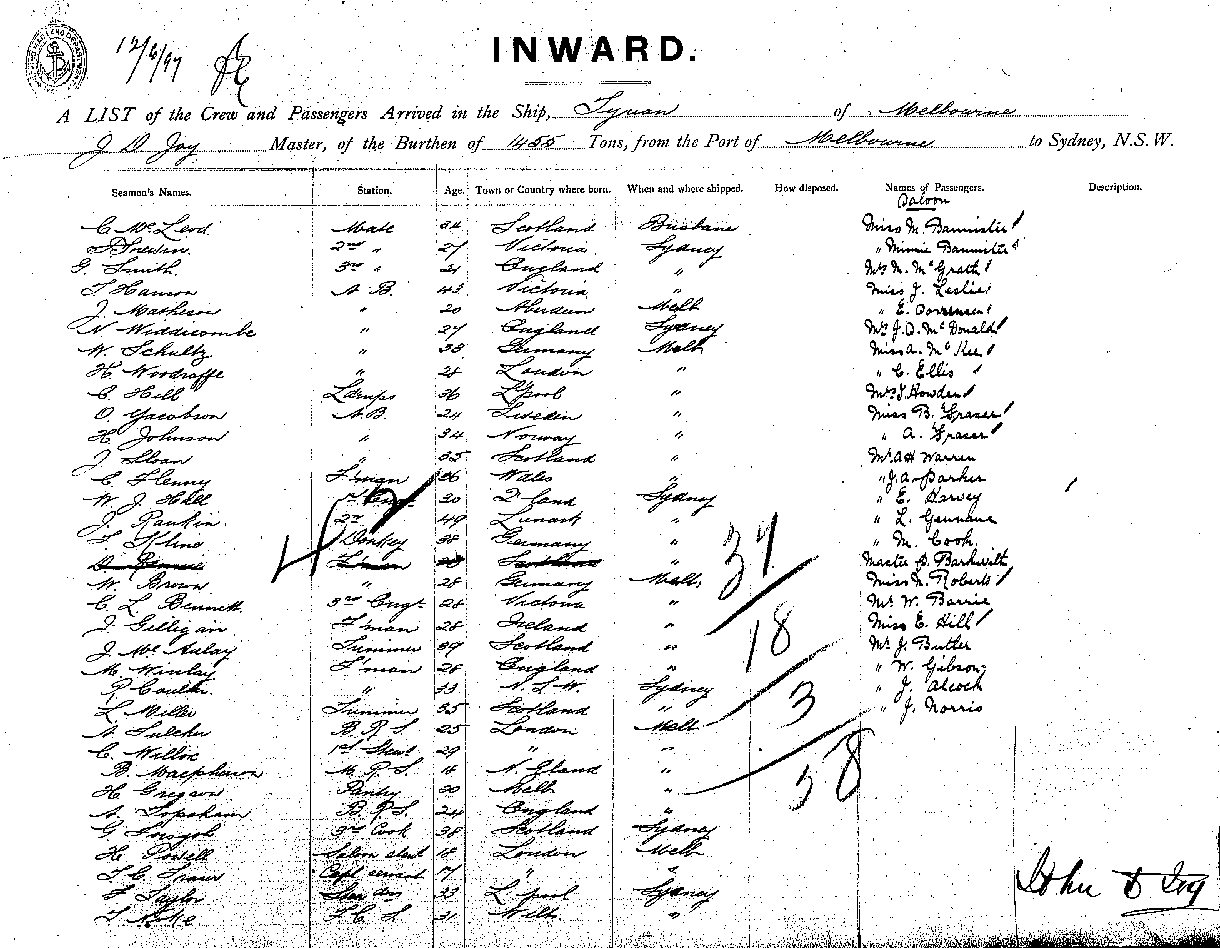 12/6/97
INWARD.
A LIST of the Crew and Passengers Arrived in the Ship, Tyrian of Melbourne
J D Joy Master, of the Burthen of 1455 Tons, from the Port of Melbourne to Sydney, N.S.W.
Seamen's Names. Station. Age. Town or Country where born. When and where shipped. How disposed. Names of Passengers. Description.
Saloon
C McLeod Mate 34 Scotland Brisbane Miss M. Bannister
2nd " 27 Victoria Sydney " Minnie Bannister
G. Smith 3rd " 21 England " Mrs M. McGrath
T Hanson A.B. 43 Victoria " Miss J. Leslie
J. Matheson " 20 Aberdeen Melb " E.
N Widdicombe " 27 England Sydney J.D. McDonald
W. Schultz " 38 Germany Melb Miss A. McKee
H. Woodroffe " 28 London " " C. Ellis
C. Hill Lamps 36 L'pool " J. Howden
O. Yacobson A.B. 24 Sweden " Miss B. Fraser
H. Johnson " 34 Norway " " A. Fraser
J. Sloan " 35 Scotland " Mr A H Warren
C. Flenny F'man 36 Wales " " J.A. Parker
W. J. Hall 1st Engr 30 Q'land Sydney " E. Harvey
J. Rankin 2nd 49 Lanark " " L. Gennane
T Kline Donkey 38 Germany " " M. Cook
F'man Scotland " Master S.
W. Brown " 28 Germany Melb. Miss M. Roberts
C. L. Bennett 3rd Engr. 28 Victoria " Mr W. Barrie
J. Gilligan F'man 28 Ireland " Miss E. Hill
J. McAulay Trimmer 39 Scotland " Mr J. Butler
M. Winlay F'man 28 England " " W. Gibson
P. " 33 N.S.W. Sydney " J. Alcock
L. Miller Trimmer 35 Scotland " " J. Norris
A. Fulcher B.R.S. 25 London Melb
C. 1st Stew 29 " "
B. Macpherson M.R.S. 18 N. Zland "
H. Gregson Pantry 30 Melb "
A. Topsham B.R.S. 24 England "
G. 3rd Cook 38 Scotland Sydney
H. Powell Saloon 18 London Melb
Capt servant 17 "
F Taylor 23 L'pool Sydney
T. 21 Melb "
42
37
18
3
58
John D Joy